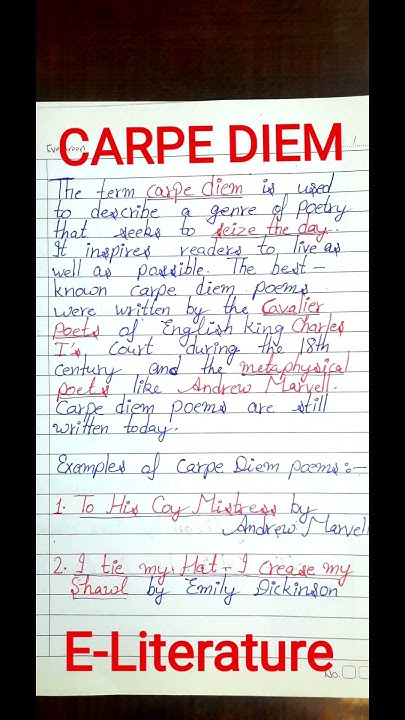 CARPE DIEM
Evergreen
The term carpe diem is used
to describe a genre of poetry
that seeks to seize the day.
It inspires readers to live as
well as possible. The best-
known carpe diem poems
were written by the Cavalier
Poets of English King Charles
I's court during the 18th
century and the metaphysical
poets like Andrew Marvell.
Carpe diem poems are still
written today.
Examples of Carpe Diem poems:-
1. To His Coy Mistress by
Andrew Marvell
2. I tie my Hat - I crease my
Shawl by Emily Dickinson
E-Literature
No.